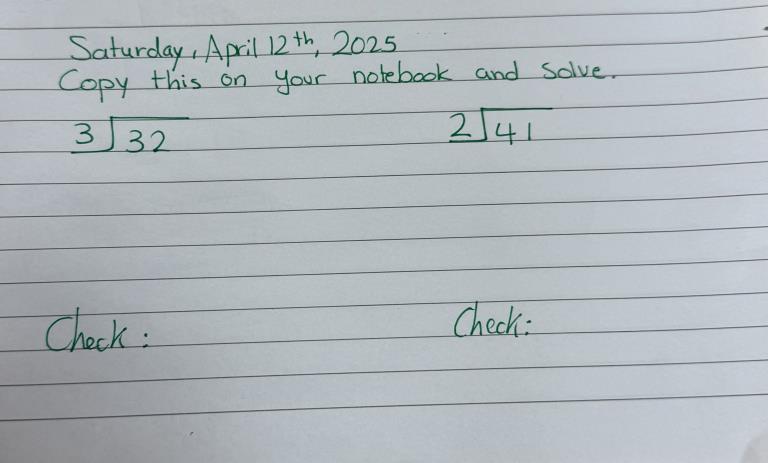 Saturday, April 12th, 2025
Copy this on your notebook and solve.
3)32 2)41
Check: Check: